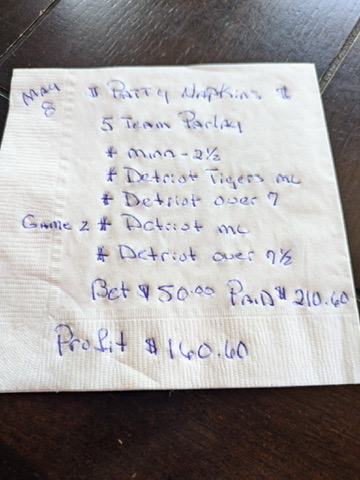 May 8
$ Party Napkins $
5 Team Parlay
# Minn - 2½
# Detriot Tigers ML
# Detriot over 7
Game 2 # Detriot ML
# Detriot over 7½
Bet $ 50.00 PAID $ 210.60
Profit $ 160.60